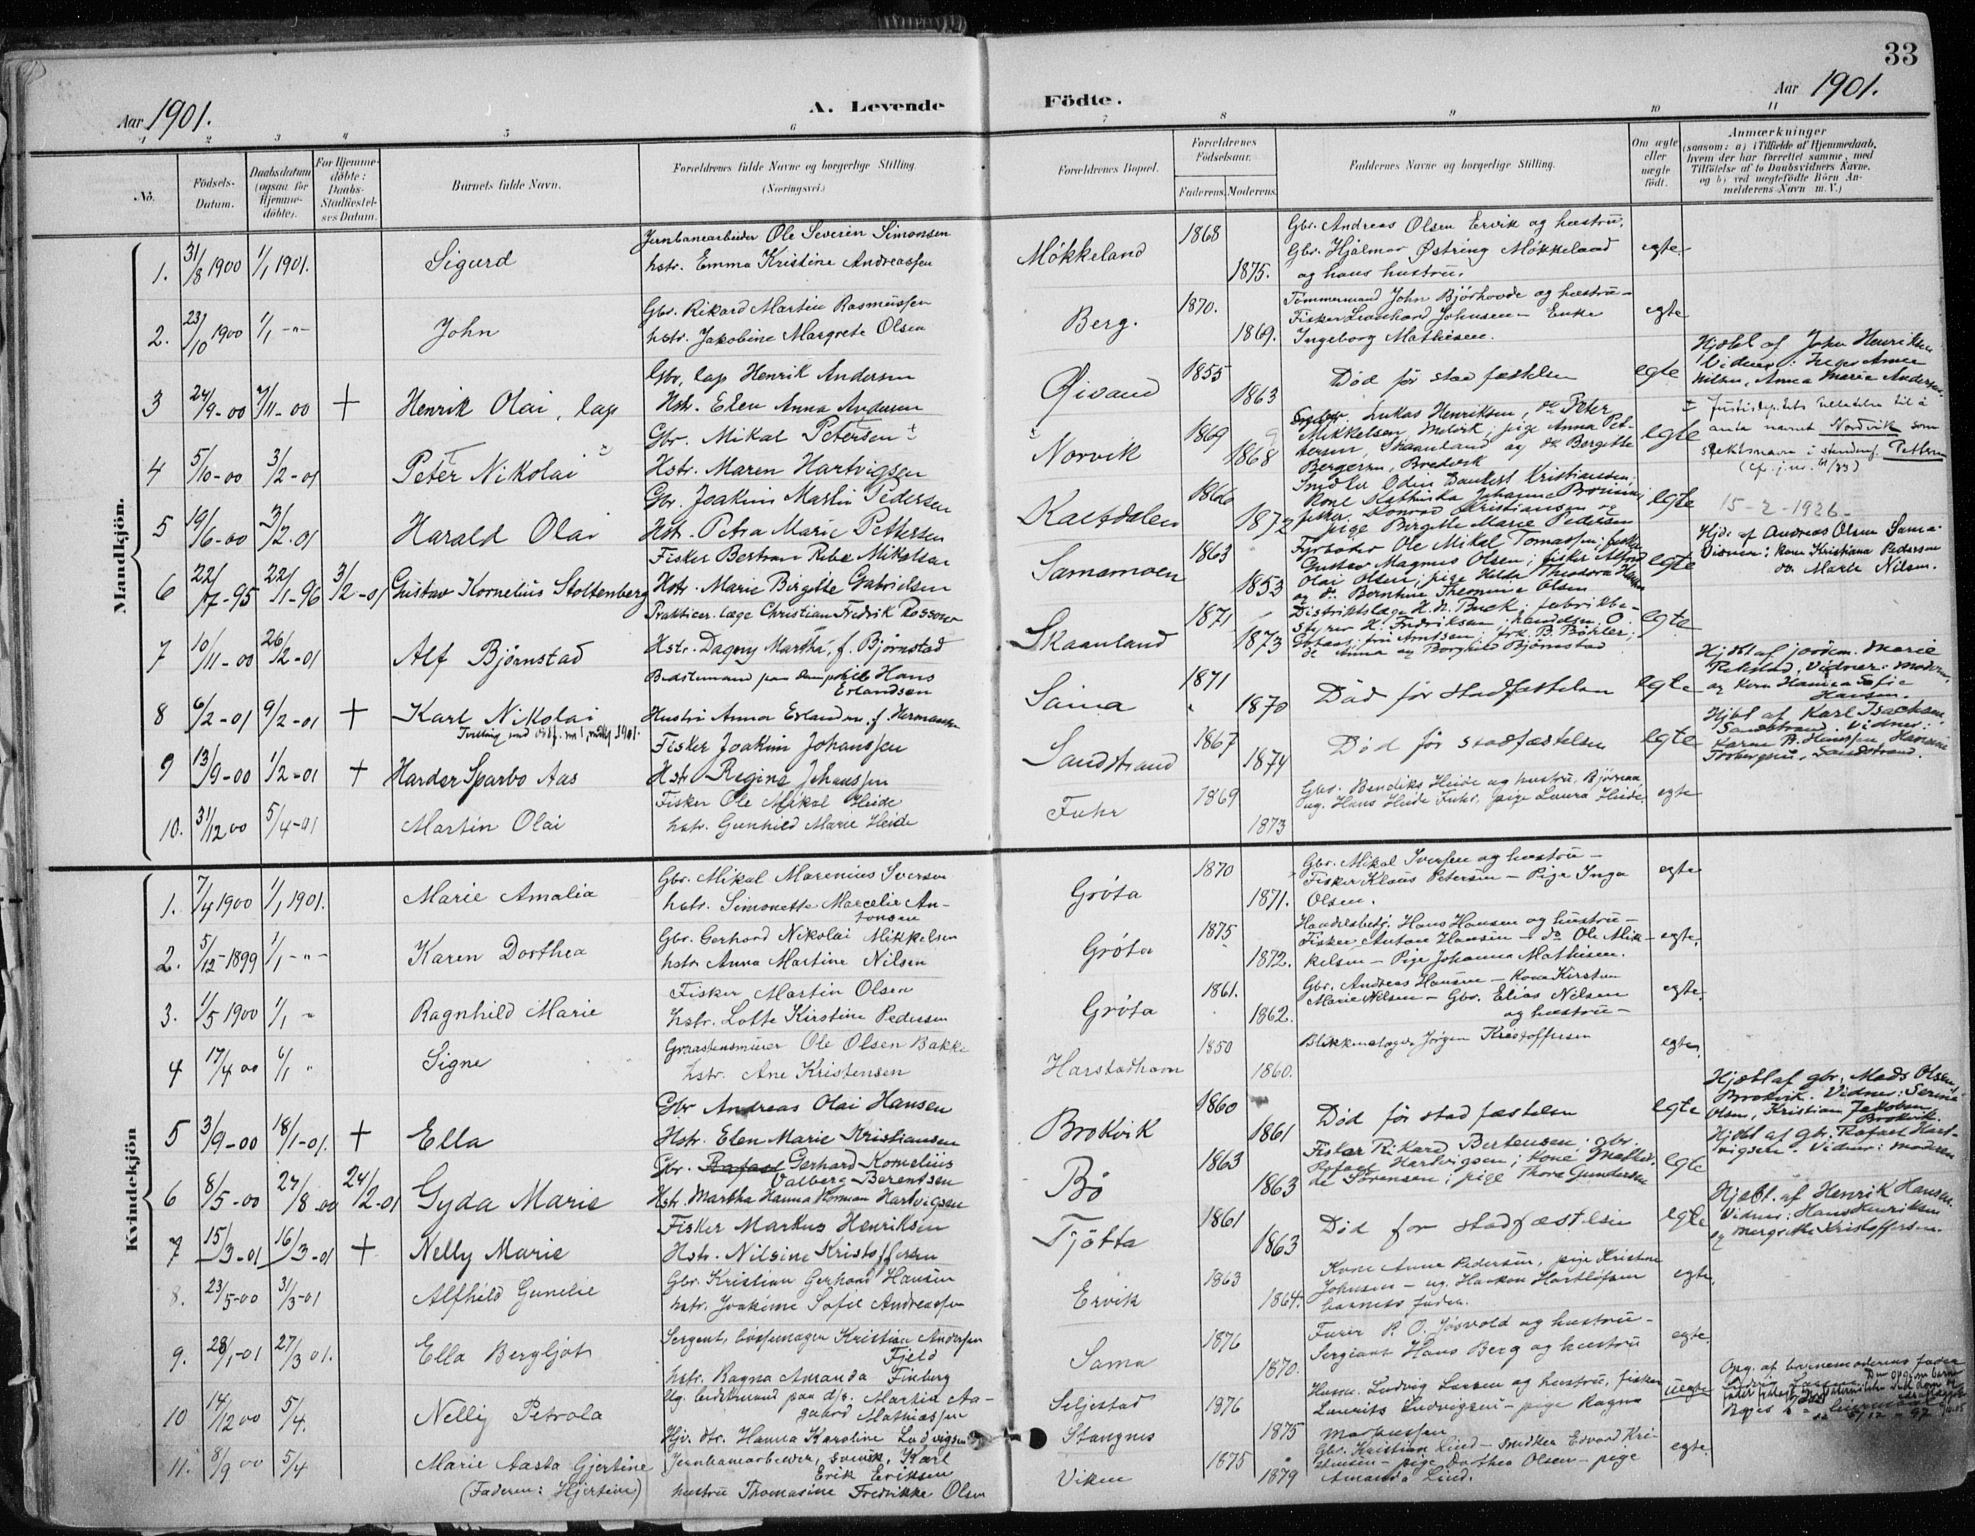 33
Aar 1901.
A. Levende Födte.
Aar 1901.
1 2 3 4 5 6 7 8 9 10 11
No.
Födsels-Datum.
Daabsdatum (ogsaa for Hjemmedöbte).
For Hjemmedöbte: Daabs-Stadfæstelses Datum.
Barnets fulde Navn.
Forældrenes fulde Navne og borgerlige Stilling.
(Næringsvei.)
Forældrenes Bopæl.
Forældrenes Födselsaar.
Faderens. Moderens.
Faddernes Navne og borgerlige Stilling.
Om ægte eller uægte födt.
Anmærkninger
(saasom: a) i Tilfælde af Hjemmedaab, hvem der har forrettet samme, med Tilföielse af to Daabsvidners Navne, og b) ved uægtefödte Börn Anmelderens Navn m. V.)
Mandkjön.
1. 31/8 1900 1/1 1901. Sigurd
Jernbanearbeider Ole Severin Simonsen
hstr. Emma Kristine Andreassen
Møkkeland 1868 1875.
Gbr. Andreas Olsen Ervik og hustru,
Gbr. Hjalmar Østring Møkkeland
og hans hustru.
egte
2. 23/10 1900 1/1 -"- John
Gbr. Rikard Martin Rasmussen
hstr. Jakobine Margrete Olsen
Berg. 1870. 1869.
Tømmermand John Bjørhovde og hustru -
Fisker Leonhard Johnsen - Enke
Ingeborg Mathisen.
egte
3 24/9-00 7/11-00 + Henrik Olai, lap
Gbr, lap Henrik Andersen
Hstr. Elen Anna Andersen
1855 1863
Død før stadfæstelsen
egte
Hjdbt af John Henriksen
4 5/10-00 3/2-01 Peter Nikolai
Gbr. Mikal Petersen
Hstr. Maren Hartvigsen
Norvik 1869 1868
Lukas Henriksen, Peter
Mikkelsen, pige Anna Pet-
dersen, Skaanland og Bergitte
Bergersen, Bredvik
egte
antа navnet Nordvik som
slektsnavn i stedenf. Pettersen
15-2-1926.
5 19/6-00 3/2-01 Harald Olai
Gbr. Joakim Martin Pedersen
Hstr. Petra Marie Pettersen
Kalfdalen 1866 1872
Kristiansen,
fisker Konrad Kristiansen og
pige Bergitte Marie Pedersen
egte
6 22/7-95 22/1-96 3/2-01 Gustav Kornelius Stoltenberg
Fisker Bertran Rebe Mikalsen
Hstr. Marie Birgitte Gabrielsen
Samamoen 1863 1853
Fyrbøder Ole Mikal Tomassen; fisker
Gustav Magnus Olsen; fisker Alfred
Olai Olsen; pige Hilda Theodora Hansen
egte
Hjd. af Andreas Olsen Sama
Vidner: kone Kristiana Pedersen
og Marte Nilsen.
7 10/11-00 26/2-01 Alf Bjørnstad
Prakticer. læge Christian Fredrik Rossow
Hstr. Dagny Martha, f. Bjørnstad
Skaanland 1871 1873
Distriktslæge H. N. Buck; fabrikbe-
styrer H. Fredriksen;
frk. B. Bøhler;
Anna og Borghild Bjørnstad
egte
8 6/2-01 9/2-01 + Karl Nikolai
Bedstemand paa dampskib Hans
Erlandsen
Hustru Anna Erlandsen, f. Hermansen
Sama 1871 1870
Død før stadfæstelsen
egte
Hjdbt af jordem. Marie
Vidner: Moderen,
og kone Hanna Sofie
Hansen.
9 13/9-00 1/2-01 + Harder Sparbo Aas
Fisker Joakim Johanssen
Hstr. Regine Johanssen
Sandstrand 1867 1874
Død før stadfæstelsen
egte
Hjdbt af Karl Isachsen,
Sandstrand. Vidner:
10. 31/12 00 5/4-01 Martin Olai
Fisker Ole Mikal Heide
hstr. Gunhild Marie Heide
Fuhr 1869 1873
Gbr. Bendiks Heide og hustru,
ug. Hans Heide Fuhr, pige Laura Heide,
egte
Kvindekjön
1. 7/4 1900 1/1 1901. Marie Amalia
Gbr. Mikal Marenius Iversen
hstr. Simonette Marcelie An-
tonsen
Grøta 1870 1871.
Gbr. Mikal Iversen og hustru -
Fisker Klaus Petersen - Pige Inga
Olsen.
egte
2. 5/12-1899 1/1 -"- Karen Dorthea
Gbr. Gerhard Nikolai Mikkelsen
hstr. Anna Martine Nilsen
Grøta 1875 1872.
Handelsbetj. Hans Hansen og hustru -
Fisker Anton Hansen - do Ole Mik-
kelsen - Pige Johanna Mathisen.
egte.
3. 1/5 1900 1/1 " Ragnhild Marie
Fisker Martin Olsen
hstr. Lotte Kirstine Pedersen
Grøta 1861. 1862.
Gbr. Andreas Hansen - Kone Kirsten
Marie Nilsen - Gbr. Elias Nilsen
og hustru -
egte.
4 17/4 00 6/1 " Signe
Graastensmurer Ole Olsen Bakke
hstr. Ane Kristensen
Harstadhavn 1850 1860.
Blikkenslager Jørgen Kristoffersen
egte
5 3/9-00 18/1-01. + Ella
Gbr Andreas Olai Hansen
Hstr. Elen Marie Kristiansen
Brokvik 1860 1861
Død før stadfæstelsen
egte
Hjdbt af gbr. Mads Olsen,
Brokvik. Vidner: Serina
Olsen, Kristian Jakobsen,
Brokvik.
6 8/5-00 27/8-00 24/2-01 Gyda Marie
Gbr. Rafael Gerhard Kornelius
Valberg Berentsen
Hstr. Martha Hanna Norman Hartvigsen
Bø 1863 1863
Fisker Rikard Bertensen; gbr.
Rafael Hartvigsen; kone Mathil-
de Sørensen; pige Thora Gundersen
egte
Hjdbt af Gbr. Rafael Hart-
vigsen. Vidner: Moderen
7 15/3-01 16/3-01 + Nelly Marie
Fisker Markus Henriksen
Hstr. Nilsine Kristoffersen
Tjøtta 1861 1863
Død før stadfæstelsen
egte
Hjdbt. af Henrik Hansen.
Vidner: Hans Henriksen
og Margrethe Kristoffersen.
8. 23/5-00 31/3-01 Alfhild Gunelie
Gbr. Kristian Gerhard Hansen
hstr. Joakime Sofie Andreassen
Ervik 1863 1864.
Kone Anne Pedersen, pige Kristine
Johnsen - ug. Haakon
barnets fader.
egte,
9. 28/1-01 27/3 01. Ella Bergljot
Sergent, bøssemager Kristian Andersen
Fjeld
hstr. Ragna Amanda Finberg
Sama 1876 1870.
Furer P. O. Jøsvold og hustru -
Sergiant Hans Berg og hustru
egte.
10 14/12 00 5/4. Nelly Petrola
Ug. bedstmand paa d/s. Martin Aa-
gaard Mathiassen
Hjv. dtr. Hanna Karoline Ludvigsen
Seljestad
Stangnes 1876 1875
Husm. Ludvig Larsen og hustru, fisker
Laurits Ludvigsen - pige Ragna
Markussen
uegte
Opg. af barnemoderens fader
11. 8/9 00 5/4 Marie Aasta Gjertine
(Faderen: Hjertein)
Jernbanearbeider, svensk, Karl
Erik Eriksen
hustru Thomasine Fredrikke Olsen
Viken 1875 1879
Gbr. Kristian Lind - snedker Edvard Kri-
stensen - pige Dorthea Olsen - pige
Amanda Lind.
egte.